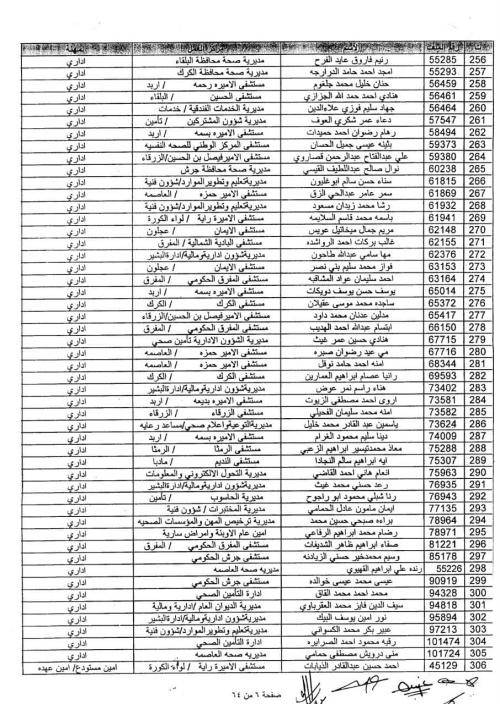 256 55285 رنيم فاروق عايد الفرح مديرية صحة محافظة البلقاء اداري
257 55293 امجد احمد حامد الدرارجه مديرية صحة محافظة الكرك اداري
258 56459 حنان خليل محمد جلغوم مستشفى الاميره رحمه / اربد اداري
259 56461 هنادي احمد حمد الله الجزازي مستشفى الحسين / البلقاء اداري
260 56464 جهاد سليم فوزي علاءالدين مديرية الخدمات الفندقية / خدمات اداري
261 57547 دعاء عمر شكري العوف مديرية شؤون المشتركين / تأمين اداري
262 58494 رهام رضوان احمد حميدات مستشفى الاميره بسمه / اربد اداري
263 59373 بثينه عيسى جميل الحسان مستشفى المركز الوطني للصحه النفسيه اداري
264 59380 علي عبدالفتاح عبدالرحمن قصاروي مستشفى الاميرفيصل بن الحسين/الزرقاء اداري
265 60238 نوال صالح عبداللطيف القيسي مديرية صحة محافظة جرش اداري
266 61815 سناء حسن سالم ابوغليون مديريةتعليم وتطويرالموارد/شؤون فنية اداري
267 61869 سمر عامر عبدالحي الزق مستشفى الامير حمزه / العاصمه اداري
268 61932 رشا محمد زيدان مسعود مديريةتعليم وتطويرالموارد/شؤون فنية اداري
269 61941 باسمه محمد قاسم السلايمه مستشفى الاميرة راية / لواء الكورة اداري
270 62148 مريم جمال ميخائيل عويس مستشفى الايمان / عجلون اداري
271 62155 غالب بركات احمد الرواشده مستشفى البادية الشمالية / المفرق اداري
272 62376 مها سامي عبدالله طاحون مديريةشؤون اداريةومالية/ادارةالبشير اداري
273 63153 فواز محمد سليم بني نصر مستشفى الايمان / عجلون اداري
274 63164 احمد سليمان عواد المشاقبه مستشفى المفرق الحكومي / المفرق اداري
275 65014 يوسف حسن يوسف دويكات مستشفى الاميره بسمه / اربد اداري
276 65372 ساجده محمد موسى عقيلان مستشفى الكرك / الكرك اداري
277 65417 مدلين عدنان محمد داود مستشفى الاميرفيصل بن الحسين/الزرقاء اداري
278 66150 ابتسام عبدالله احمد الهديب مستشفى المفرق الحكومي / المفرق اداري
279 67715 هنادي حسين عمر غيث مديرية الشؤون الادارية تأمين صحي اداري
280 67716 مي عيد رضوان صبره مستشفى الامير حمزه / العاصمه اداري
281 68344 امنه احمد حامد نوفل مستشفى الامير حمزه / العاصمه اداري
282 69593 رانيا عصام ابراهيم العمارين مستشفى الكرك / الكرك اداري
283 73402 هناء راسم نمر عوض مديريةشؤون اداريةومالية/ادارةالبشير اداري
284 73581 اروى احمد مصطفى الزيوت مستشفى الاميره بديعه / اربد اداري
285 73582 امنه محمد سليمان الفحيلي مستشفى الزرقاء / الزرقاء اداري
286 73624 ياسمين عبد القادر محمد خليل مديريةالتوعيةواعلام صحي/مساعد رعايه اداري
287 74009 دينا سليم محمود الغرام مستشفى الاميره بسمه / اربد اداري
288 75288 معاذ محمدتيسير ابراهيم الزعبي مستشفى الرمثا / الرمثا اداري
289 75307 ايه ابراهيم سالم النجادا مستشفى النديم / مادبا اداري
290 75963 انعام هاني احمد القاضي مديرية التحول الالكتروني والمعلومات اداري
291 76935 رعد حسني محمد غيث مديريةشؤون اداريةومالية/ادارةالبشير اداري
292 76943 رنا شبلي محمود ابو راجوح مديرية الحاسوب / تأمين اداري
293 77135 ايمان مامون عادل الحمامي مديرية المختبرات / شؤون فنية اداري
294 78964 براءه صبحي حسين محمد مديرية ترخيص المهن والمؤسسات الصحيه اداري
295 78971 رضام محمد ابراهيم الرفاعي امين عام الاوبئة وامراض سارية اداري
296 81221 صفاء ابراهيم ظاهر الشديفات مستشفى المفرق الحكومي / المفرق اداري
297 85178 وسيم محمدخير حسني الزيادنه مستشفى جرش الحكومي اداري
298 55226 رنده علي ابراهيم القهيوي مديريه صحه العاصمه اداري
299 90919 عيسى محمد عيسى خوالده مستشفى جرش الحكومي اداري
300 94328 محمد احمد محمد القاق ادارة التأمين الصحي اداري
301 94818 سيف الدين فايز محمد العقرباوي مديرية الديوان العام / ادارية ومالية اداري
302 95894 نور امين يوسف البيك مديريةشؤون اداريةومالية/ادارةالبشير اداري
303 97213 عبير بكر محمد الكسواني مديريةتعليم وتطويرالموارد/شؤون فنية اداري
304 101474 رقيه محمود احمد الصرايره ادارة التأمين الصحي اداري
305 101724 منى درويش مصطفى حمامي مديريه صحه العاصمه اداري
306 45129 احمد حسين عبدالقادر الذيابات مستشفى الاميرة راية / لواء الكورة امين مستودع/ امين عهده
صفحة ٦ من ٦٤